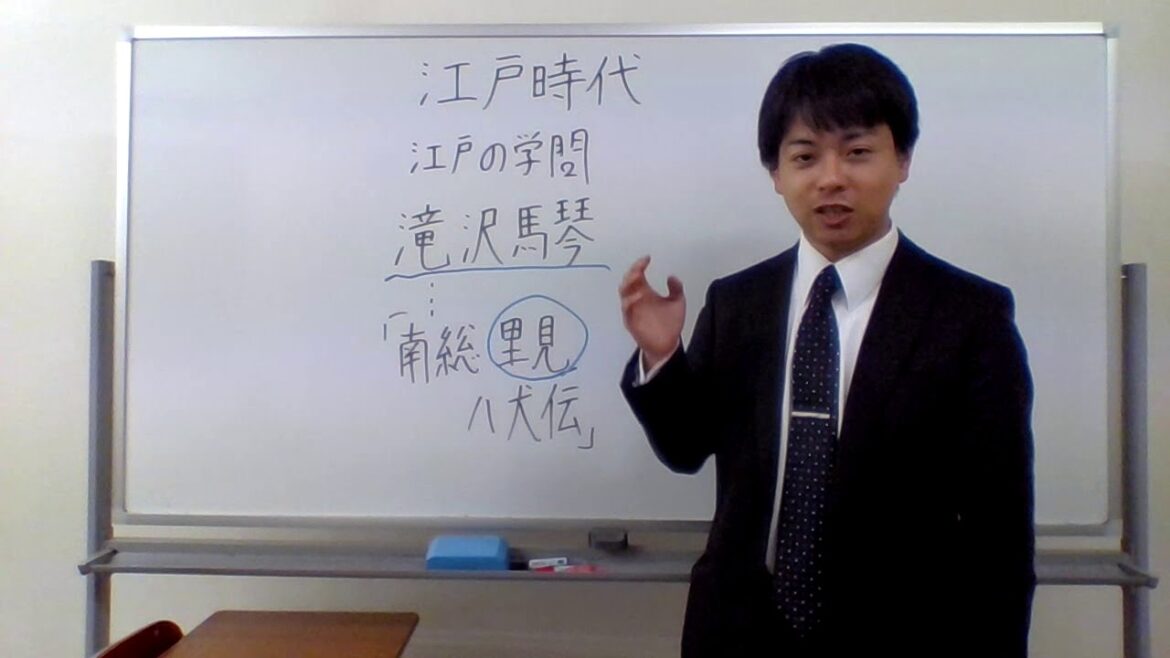 江戸時代
江戸の学問
滝沢馬琴
⋮
「南総里見
八犬伝」